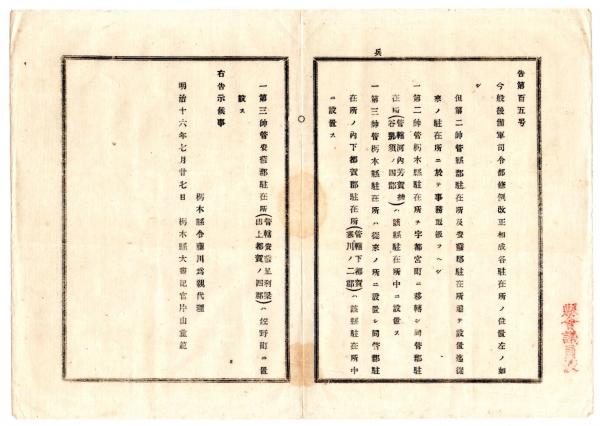 兵
告第百五号
今般後備軍司令部條例改正相成各駐在所ノ位置左ノ如
シ
但第二師管縣郡駐在所及安蘇郡駐在所追テ設置迄従
來ノ駐在所ニ於テ事務取扱フヘシ
一第二師管栃木縣駐在所ヲ宇都宮町ニ移轉シ同管郡駐
在所(管轄河内芳賀塩谷那須ノ四郡)ハ該縣駐在所中ニ設置ス
一第三師管栃木縣駐在所ハ従來ノ所ニ設置シ同管郡駐
在所ノ内下都賀郡駐在所(管轄下都賀寒川ノ二郡)ハ該縣駐在所中
ニ設置ス
一第三師管安蘇郡駐在所(管轄安蘇足利梁田上都賀ノ四郡)ハ佐野町ニ設
置ス
右告示候事
栃木縣令藤川為親代理
明治十六年七月廿七日 栃木縣大書記官片山重範
縣會議員